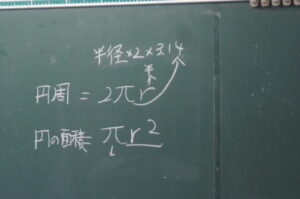 半径×2×3.14
半
円周 = 2πr
円の面積= πr²